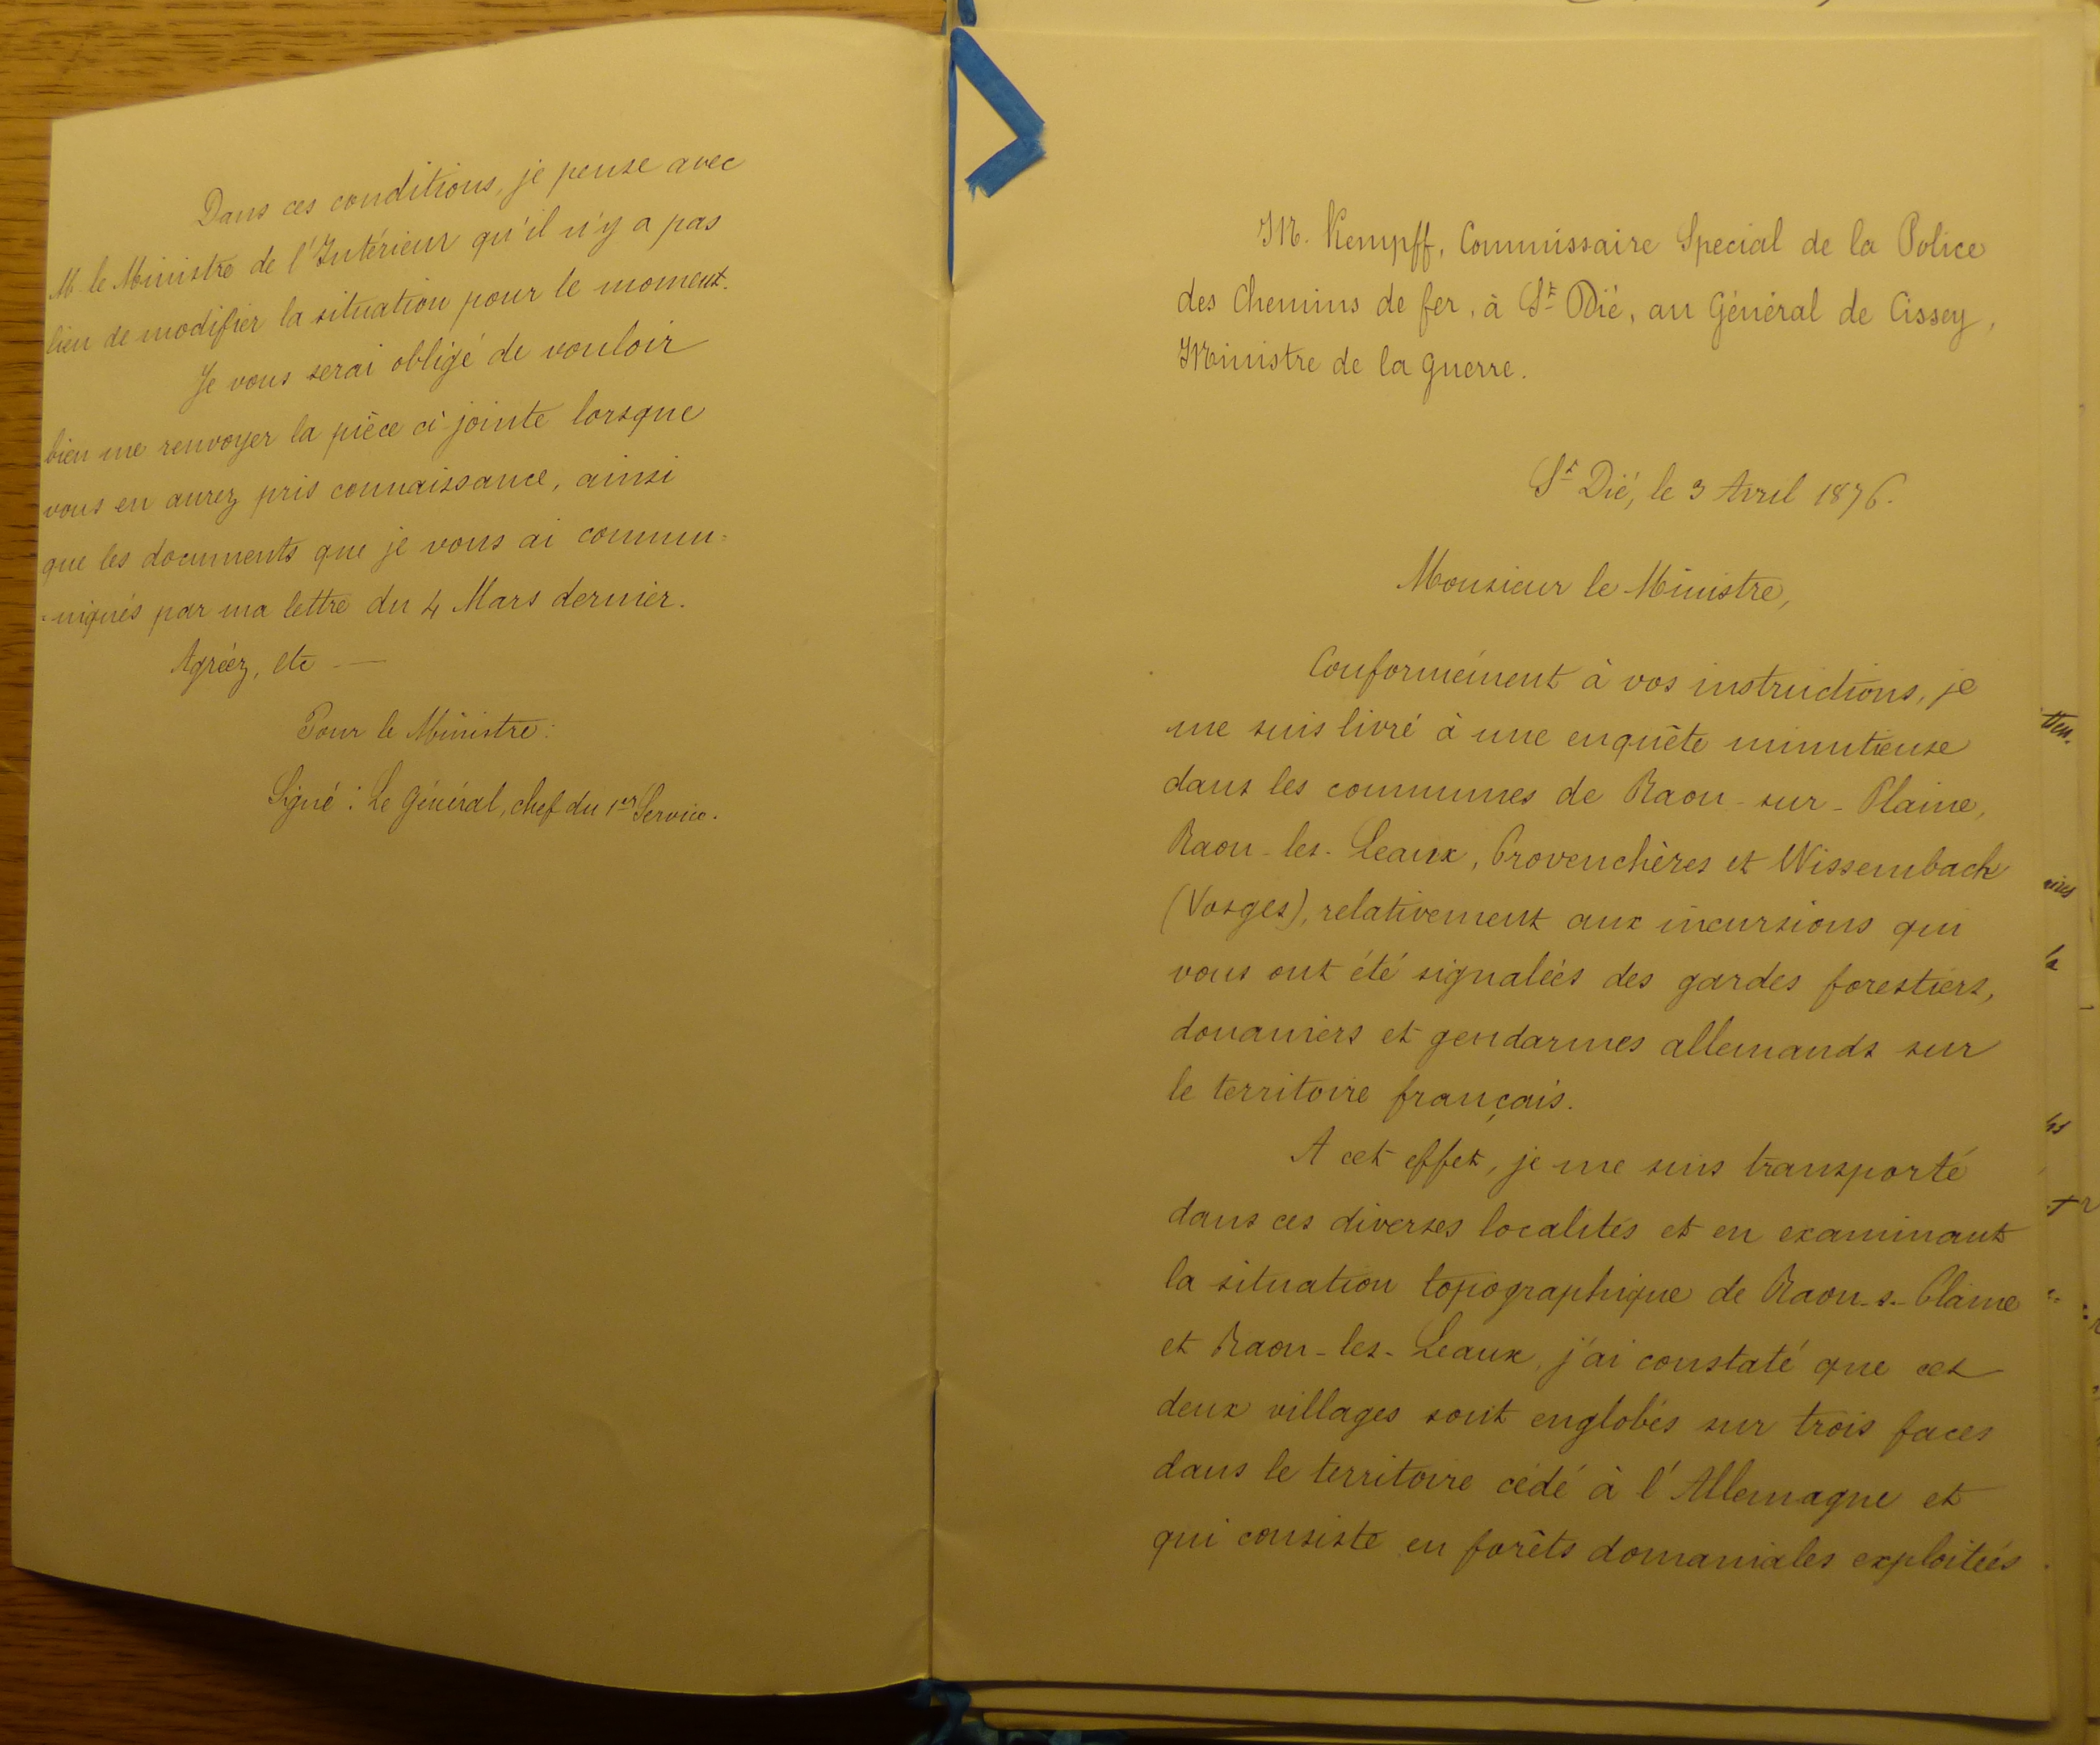 Dans ces conditions, je pense avec
M. le Ministre de l'Intérieur qu'il n'y a pas
lieu de modifier la situation pour le moment.
Je vous serai obligé de vouloir
bien me renvoyer la pièce ci-jointe lorsque
vous en aurez pris connaissance, ainsi
que les documents que je vous ai commu=
=niqués par ma lettre du 4 Mars dernier.
Agréez, etc _ —
Pour le Ministre:
Signé: Le Général, chef du 1er Service.
M. Kempff, Commissaire Special de la Police
des Chemins de fer, à St Dié, au Général de Cissey,
Ministre de la Guerre.
St Dié, le 3 Avril 1876.
Monsieur le Ministre,
Conformément à vos instructions, je
me suis livré à une enquête minutieuse
dans les communes de Raon-sur-Plaine,
Raon-les-Leaux, Provenchères et Wissembach
(Vosges), relativement aux incursions qui
vous ont été signalées des gardes forestiers,
douaniers et gendarmes allemands sur
le territoire français.
A cet effet, je me suis transporté
dans ces diverses localités et en examinant
la situation topographique de Raon-s-Plaine
et Raon-les-Leaux, j'ai constaté que ces
deux villages sont englobés sur trois faces
dans le territoire cédé à l'Allemagne et
qui consiste en forêts domaniales exploitées